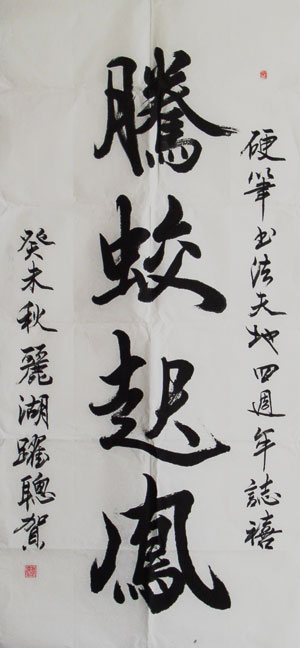 硬筆书法天地四週年誌禧
騰蛟起鳳
癸未秋麗湖躍聰賀